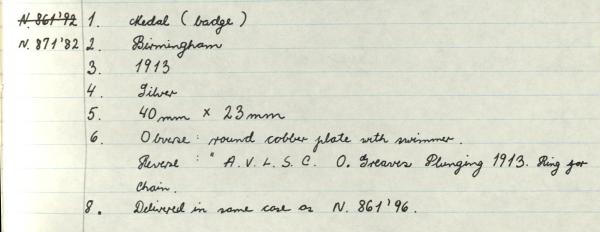 N. 861'92 1. Medal (badge)
N. 871'82 2. Birmingham
3. 1913
4. Silver
5. 40mm x 23mm
6. Obverse: round cobber plate with swimmer.
Reverse: " A.V.L.S.C. O. Greaves Plunging 1913. Ring for
chain.
8. Delivered in same case as N. 861'96.